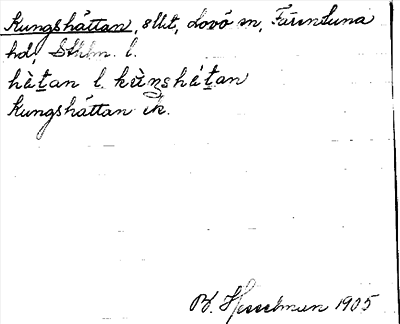 Kungshåttan, slht, Lovö sn, Färentuna
hd, Sthlm. l.
hàt̠an l. kùŋshát̠an
Kungshåttan ek.
B. Hesselman 1905